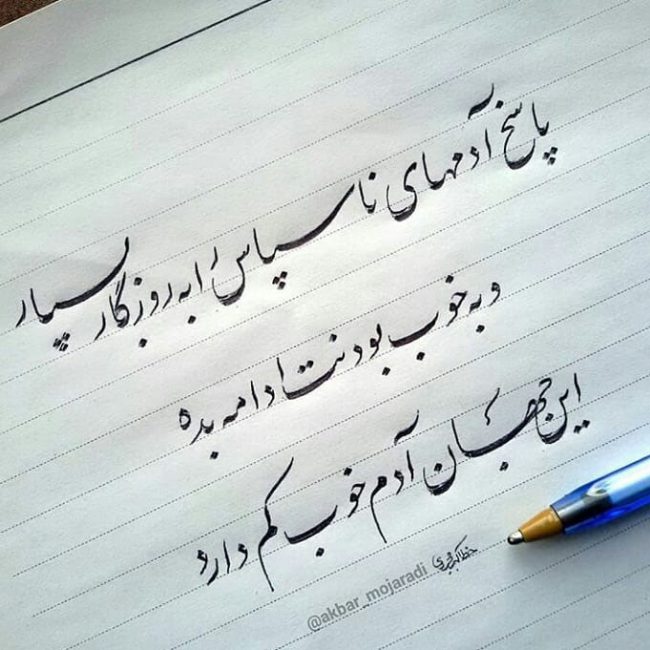 پاسخ آدمهای ناسپاس را به روزگار بسپار
و به خوب بودنت ادامه بده
این جهان آدم خوب کم دارد
خط اکبر مجردی
@akbar_mojaradi